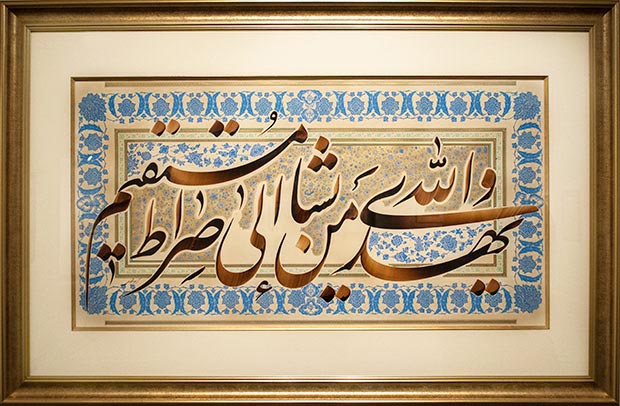 والله يهدى مَن يشا إلى صِراط مُستقيم